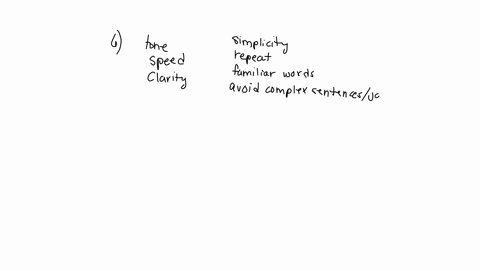 6) tone simplicity
speed repeat
Clarity familiar words
avoid complex sentences/